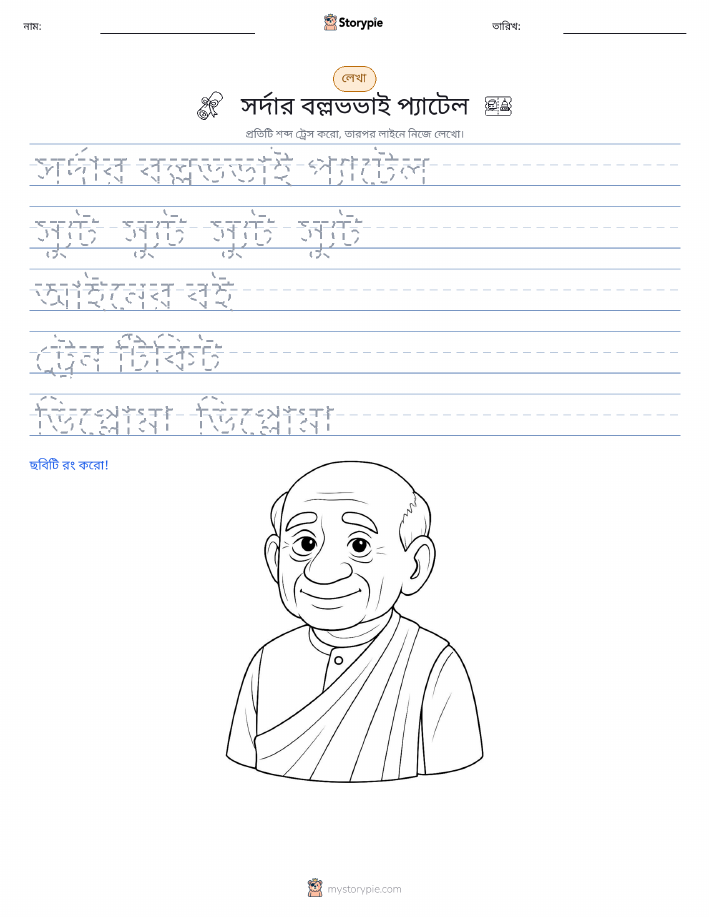 নাম:
Storypie
তারিখ:
লেখা
সর্দার বল্লভভাই প্যাটেল
প্রতিটি শব্দ ট্রেস করো, তারপর লাইনে নিজে লেখো।
সর্দার বল্লভভাই প্যাটেল
স্যুট স্যুট স্যুট স্যুট
আইনের বই
ট্রেন টিকিট
ডিপ্লোমা ডিপ্লোমা
ছবিটি রং করো!
mystorypie.com